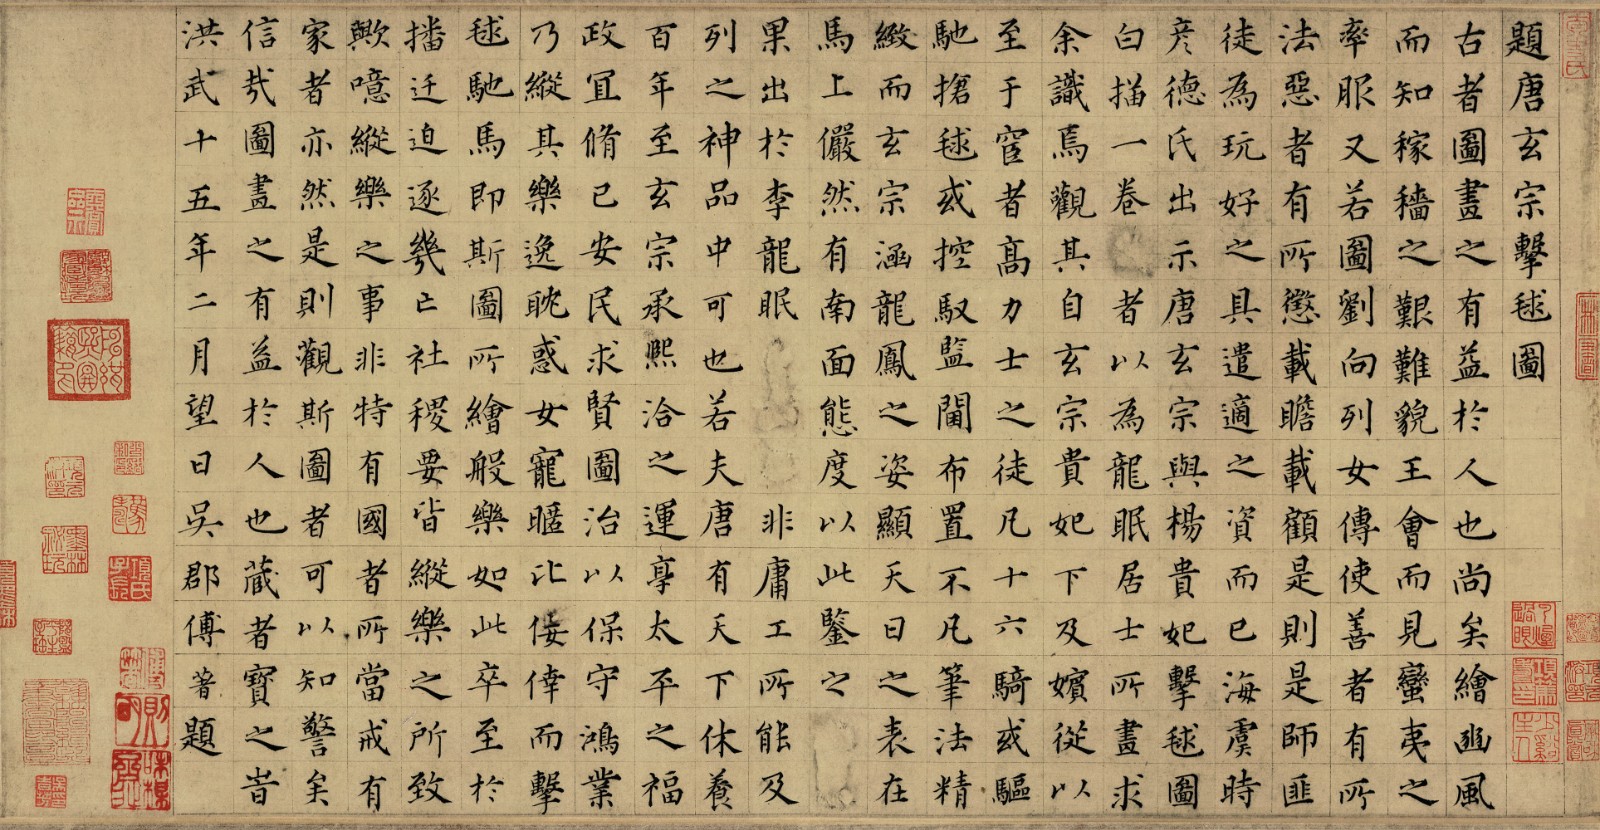 題唐玄宗擊毬圖
古者圖畫之有益於人也尚矣繪豳風
而知稼穡之艱難貌王會而見蠻夷之
率服又若圖劉向列女傳使善者有所
法惡者有所懲載瞻載顧是則是師匪
徒為玩好之具遣適之資而已海虞時
彥德氏出示唐玄宗與楊貴妃擊毬圖
白描一卷者以為龍眠居士所畫求
余識焉觀其自玄宗貴妃下及嬪從以
至于宦者高力士之徒凡十六騎或驅
馳搶毬或控馭監閫布置不凡筆法精
緻而玄宗涵龍鳳之姿顯天日之表在
馬上儼然有南面態度以此鑒之
果出於李龍眠非庸工所能及
列之神品中可也若夫唐有天下休養
百年至玄宗承熙洽之運享太平之福
政宜脩己安民求賢圖治以保守鴻業
乃縱其樂逸耽惑女寵暱比佞倖而擊
毬馳馬即斯圖所繪般樂如此卒至於
播迁迫逐幾亡社稷要皆縱樂之所致
歟噫縱樂之事非特有國者所當戒有
家者亦然是則觀斯圖者可以知警矣
信哉圖畫之有益於人也藏者寶之旹
洪武十五年二月望日吳郡傅著題